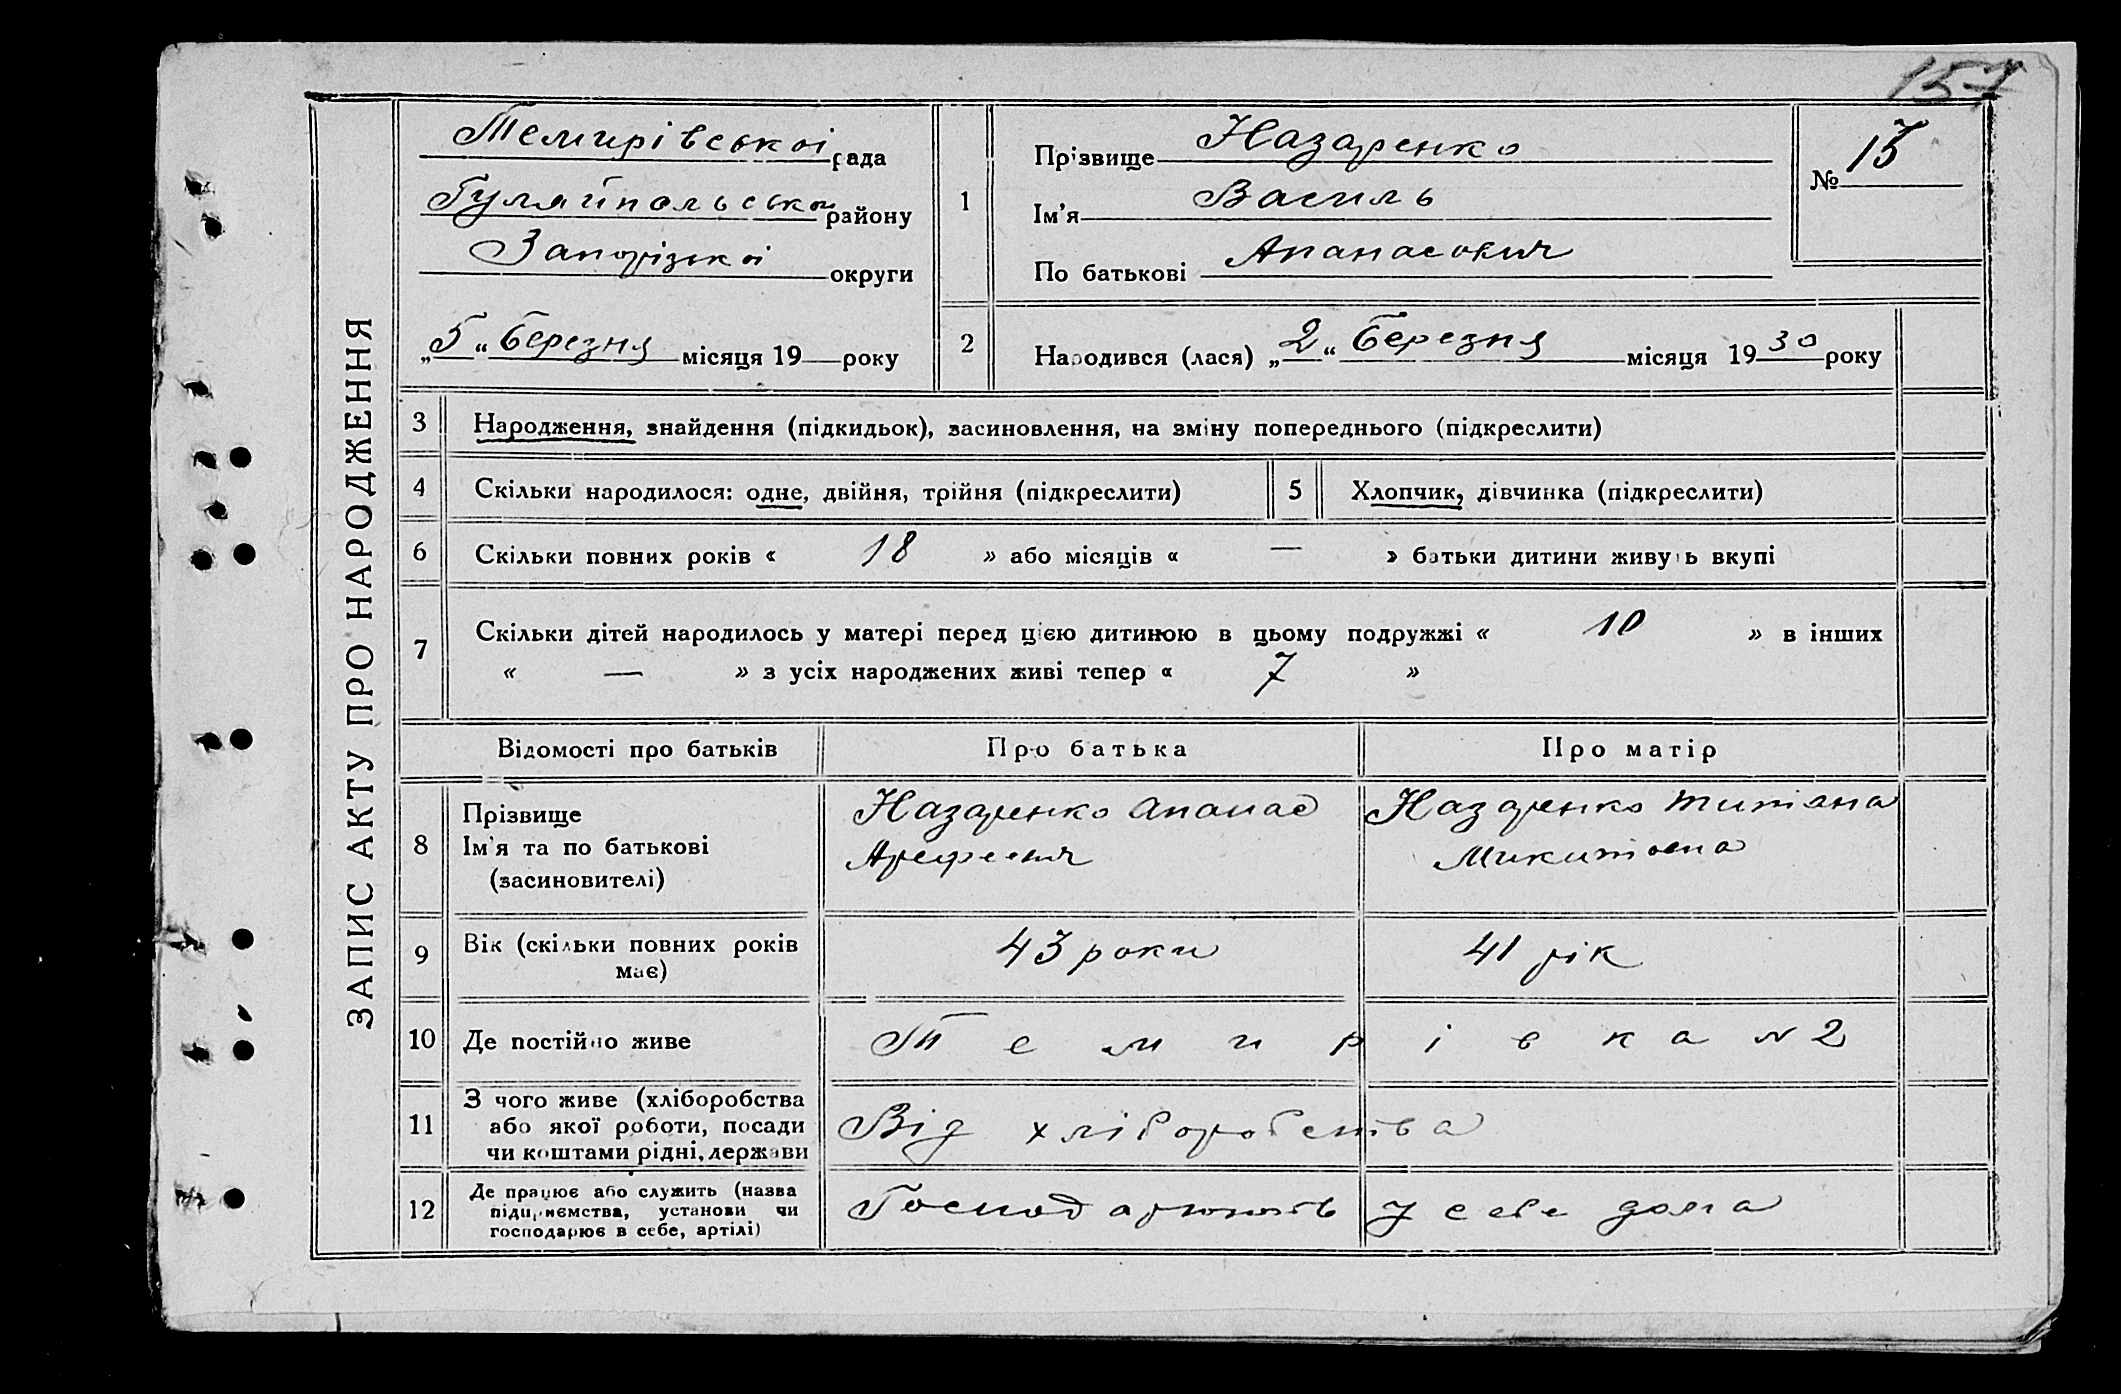 157
ЗАПИС АКТУ ПРО НАРОДЖЕННЯ
Темирівськоі рада
Гуляйпольськоі району
Запорізькоі округи
„5“ березня місяця 19 року
1
Прізвище Назаренко
Ім'я Василь
По батькові Апанасович
№ 15
2 Народився (лася) „2“ березня місяця 1930 року
3 Народження, знайдення (підкидьок), засиновлення, на зміну попереднього (підкреслити)
4 Скільки народилося: одне, двійня, трійня (підкреслити) 5 Хлопчик, дівчинка (підкреслити)
6 Скільки повних років « 18 » або місяців « — » батьки дитини живуть вкупі
7 Скільки дітей народилось у матері перед цією дитиною в цьому подружжі « 10 » в інших
« — » з усіх народжених живі тепер « 7 »
Відомості про батьків Про батька Про матір
8 Прізвище
Ім'я та по батькові
(засиновителі)
Назаренко Апанас
Назаренко Титяна
Микитовна
9 Вік (скільки повних років
має)
43 роки 41 рік
10 Де постійно живе Темирівка №2
11 З чого живе (хліборобства
або якої роботи, посади
чи коштами рідні, держави
Від хліборобства
12 Де працює або служить (назва
підприємства, установи чи
господарює в себе, артілі)
Господарюють у себе дома